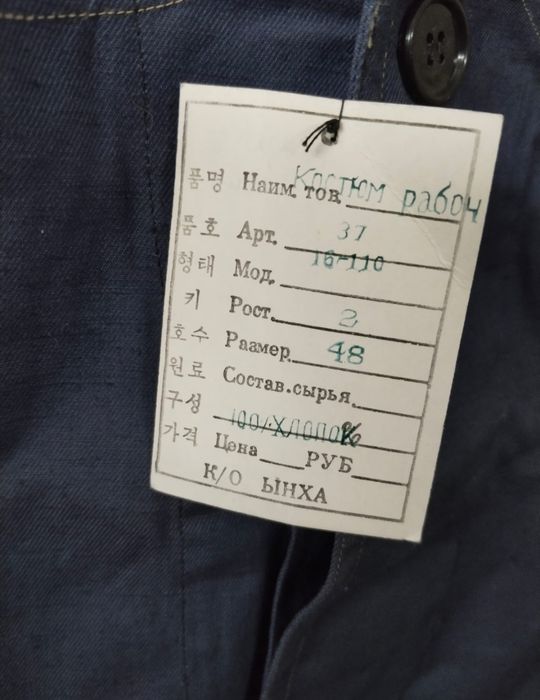 품명 Наим. тов. Костюм рабоч
품호 Арт. 37
형태 Мод. 16-110
키 Рост. 2
호수 Размер. 48
원료 Состав.сырья.
구성 100%ХЛОПОК
가격 Цена РУБ
К/О ЫНХА